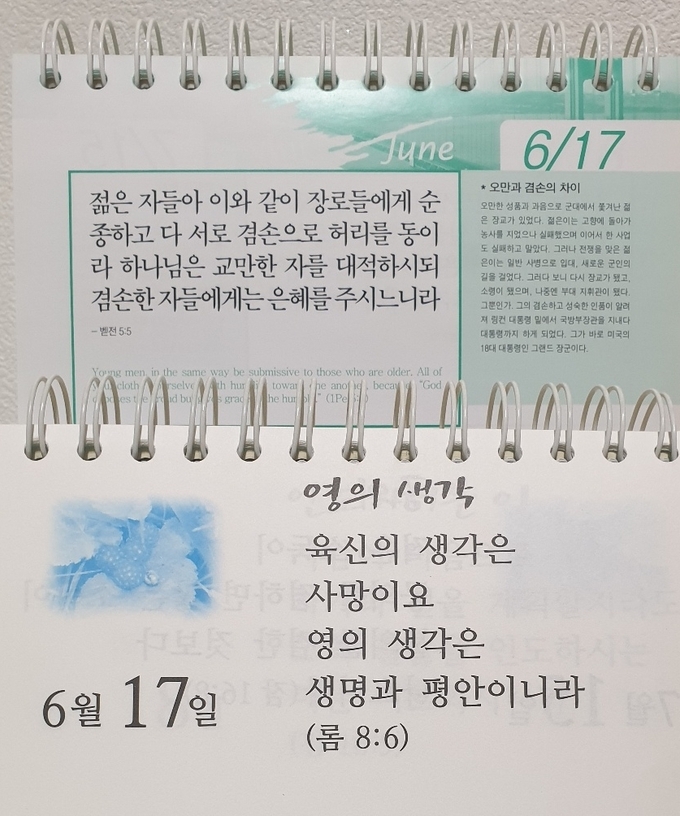 June
6/17
젊은 자들아 이와 같이 장로들에게 순
종하고 다 서로 겸손으로 허리를 동이
라 하나님은 교만한 자를 대적하시되
겸손한 자들에게는 은혜를 주시느니라
– 벧전 5:5
Young men, in the same way be submissive to those who are older. All of
* 오만과 겸손의 차이
오만한 성품과 과음으로 군대에서 쫓겨난 젊
은 장교가 있었다. 젊은이는 고향에 돌아가
농사를 지었으나 실패했으며 이어서 한 사업
도 실패하고 말았다. 그러나 전쟁을 맞은 젊
은이는 일반 사병으로 입대, 새로운 군인의
길을 걸었다. 그러다 보니 다시 장교가 됐고,
소령이 됐으며, 나중엔 부대 지휘관이 됐다.
그뿐인가. 그의 겸손하고 성숙한 인품이 알려
져 링컨 대통령 밑에서 국방부장관을 지내다
대통령까지 하게 되었다. 그가 바로 미국의
18대 대통령인 그랜드 장군이다.
영의 생각
육신의 생각은
사망이요
영의 생각은
생명과 평안이니라
(롬 8:6)
6월 17일